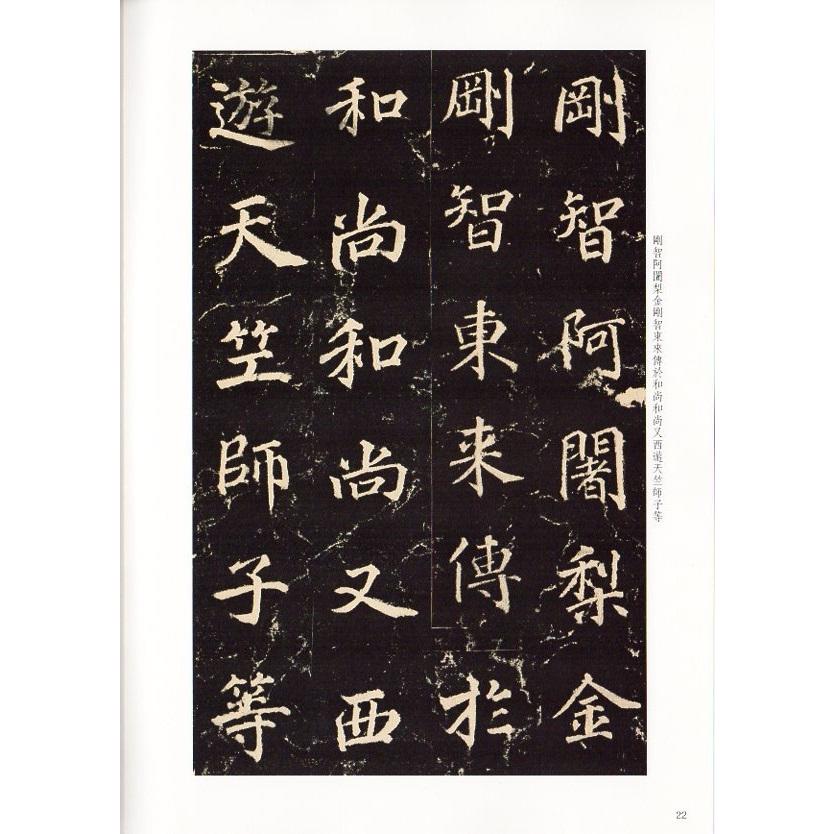 剛智阿闍梨金
剛智東来傳於
和尚和尚又西
遊天竺師子等
剛智阿闍梨金剛智東來傳於和尚和尚又西遊天竺師子等
22